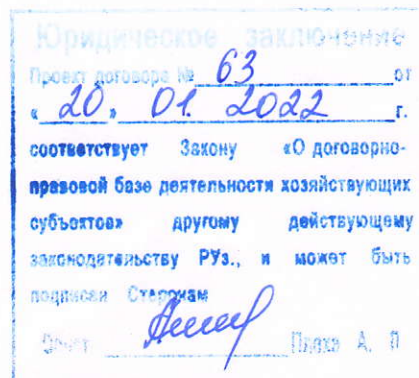 Юридическое заключение
Проект договора № 63 от
« 20 » 01. 2022 г.
соответствует Закону «О договорно-
правовой базе деятельности хозяйствующих
субъектов» другому действующему
законодательству РУз., и может быть
подписан Сторонам
А. П